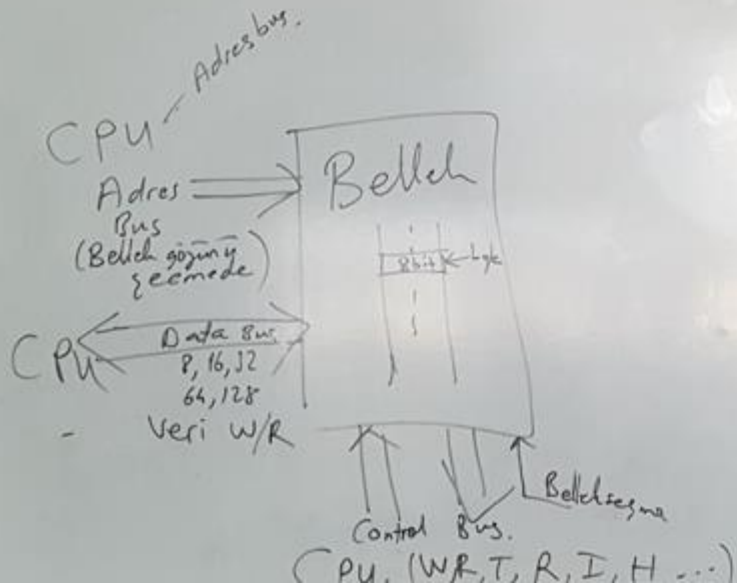 CPU
Adresbus.
Adres
Bus
(Bellek gözünü
seçmede)
Bellek
8bit
CPU
Data Bus
8, 16, 32
64, 128
Veri W/R
Bellekseçme
Control Bus.
CPU. (WR, T, R, I, H ...)